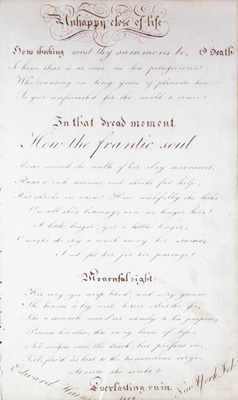 Unhappy close of life
How shocking must thy summons be, O Death
To him that is at ease in his possessions!
Who counting on long years of pleasure here,
Is quite unfurnish'd for the world to come!
In that dread moment,
How the frantic soul
Raves round the walls of her clay tenement,
Runs to each avenue, and shrieks for help;
But shrieks in vain! How wishfully she looks
On all she's leaving, now no longer her's!
A little longer; yet a little longer;
O might she stay to wash away her stains;
And fit her for her passage!
Mournful sight!
Her very eyes weep blood; and every groan
She heaves is big with horror. But the foe,
Like a staunch murd'rer steady to his purpose,
Pursues her close, thro' every lane of life;
Nor misses once the track; but presses on,
Till, forc'd at last to the tremendous verge,
At once she sinks to
Everlasting ruin.
Edward
New York